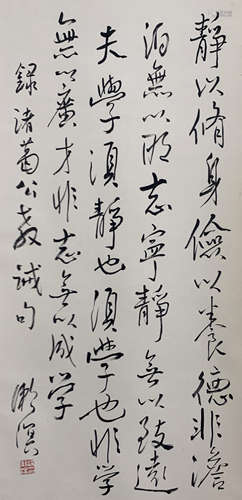 靜以脩身儉以養德非澹
泊無以明志寧靜無以致遠
夫學須靜也須學也非学
無以廣才非志無以成学
録諸葛公教誡句